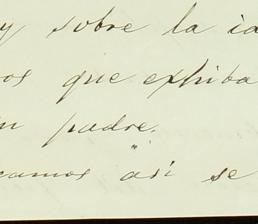 y sobre la
os que exhiba
padre.
camos así se